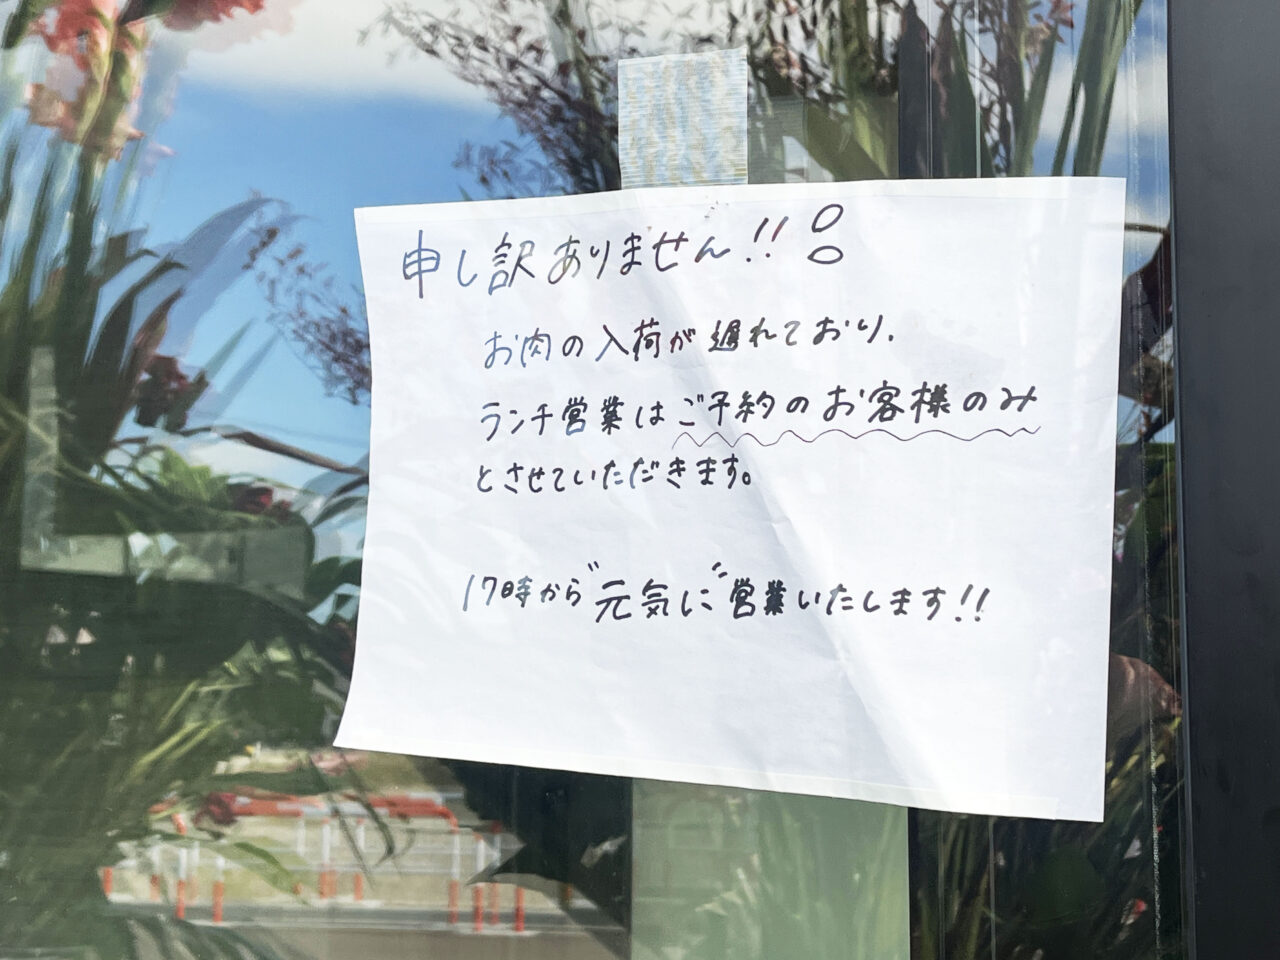 申し訳ありません!!
お肉の入荷が遅れており、
ランチ営業はご予約のお客様のみ
とさせていただきます。
17時から"元気に"営業いたします!!